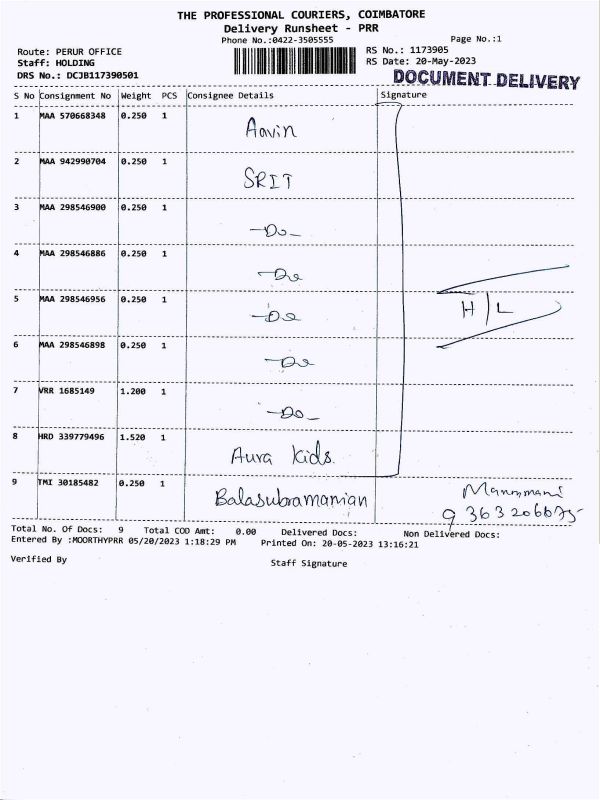 THE PROFESSIONAL COURIERS, COIMBATORE
Delivery Runsheet - PRR
Phone No.:0422-3505555 Page No.:1
Route: PERUR OFFICE RS No.: 1173905
Staff: HOLDING RS Date: 20-May-2023
DRS No.: DCJB117390501 DOCUMENT DELIVERY
S No Consignment No Weight PCS Consignee Details Signature
1 MAA 570668348 0.250 1 Aavin
2 MAA 942990704 0.250 1 SRIT
3 MAA 298546900 0.250 1 -Do-
4 MAA 298546886 0.250 1 -Do
5 MAA 298546956 0.250 1 -Do H/L
6 MAA 298546898 0.250 1 -Do
7 VRR 1685149 1.200 1 -Do-
8 HRD 339779496 1.520 1 Aura kids.
9 TMI 30185482 0.250 1 Balasubramanian
Total No. Of Docs: 9 Total COD Amt: 0.00 Delivered Docs: Non Delivered Docs:
Entered By :MOORTHYPRR 05/20/2023 1:18:29 PM Printed On: 20-05-2023 13:16:21
Verified By Staff Signature